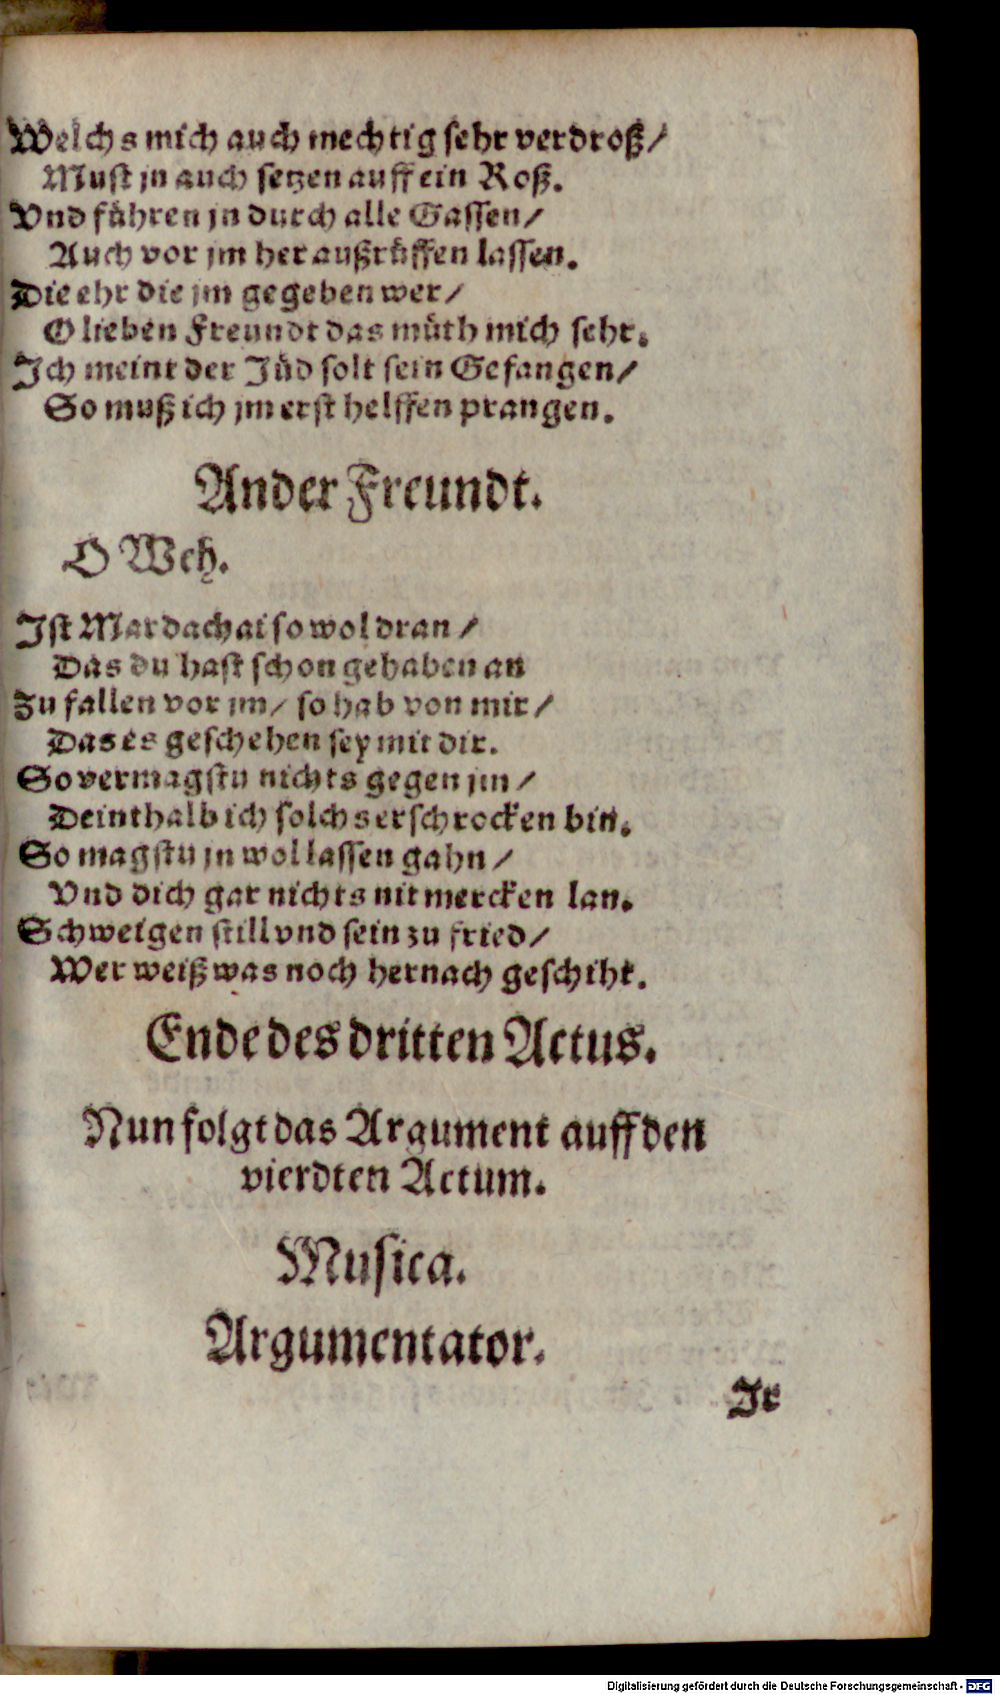 Welchs mich auch mechtig sehr verdroß/
Must jn auch setzen auff ein Roß.
Vnd führen jn durch alle Gassen/
Auch vor jm her außrüffen lassen.
Die ehr die jm gegeben wer/
O lieben Freundt das müth mich sehr.
Ich meint der Jüd solt sein Gefangen/
So muß ich jm erst helffen prangen.
Ander Freundt.
O Weh.
Ist Mardachai so wol dran/
Das du hast schon gehaben an
Zu fallen vor jm/ so hab von mir/
Das es geschehen sey mit dir.
So vermagstu nichts gegen jm/
Deinthalb ich solchs erschrocken bin.
So magstu jn wol lassen gahn/
Vnd dich gar nichts nit mercken lan.
Schweigen still vnd sein zu fried/
Wer weiß was noch hernach geschiht.
Ende des dritten Actus.
Nun folgt das Argument auff den
vierdten Actum.
Musica.
Argumentator.
Ir
Digitalisierung gefördert durch die Deutsche Forschungsgemeinschaft - DFG